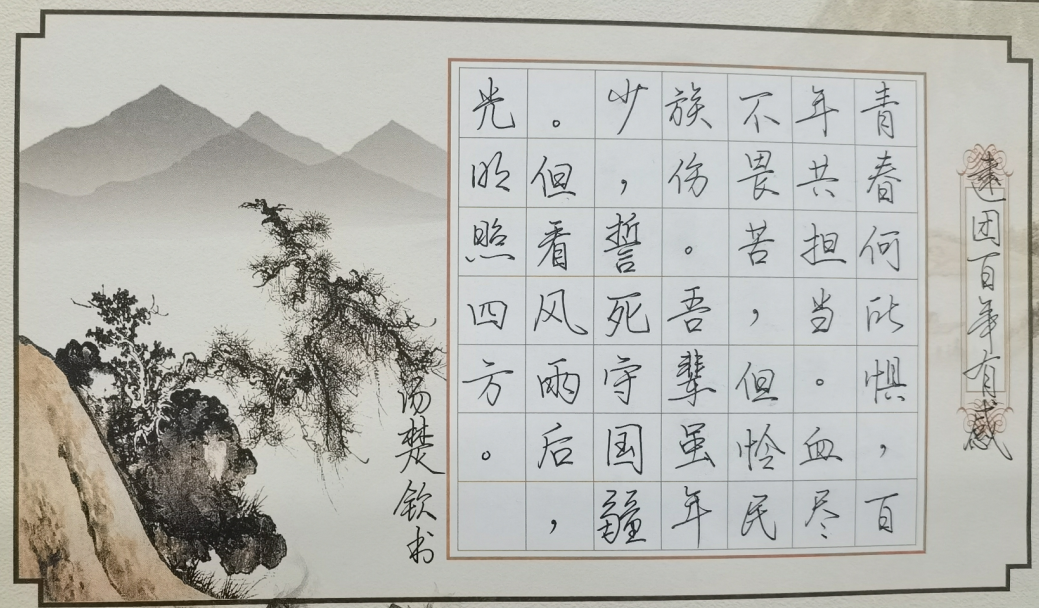 建团百年有感
青春何所惧，百
年共担当。血尽
不畏苦，但怜民
族伤。吾辈虽年
少，誓死守国疆
。但看风雨后，
光明照四方。
汤焚钦书